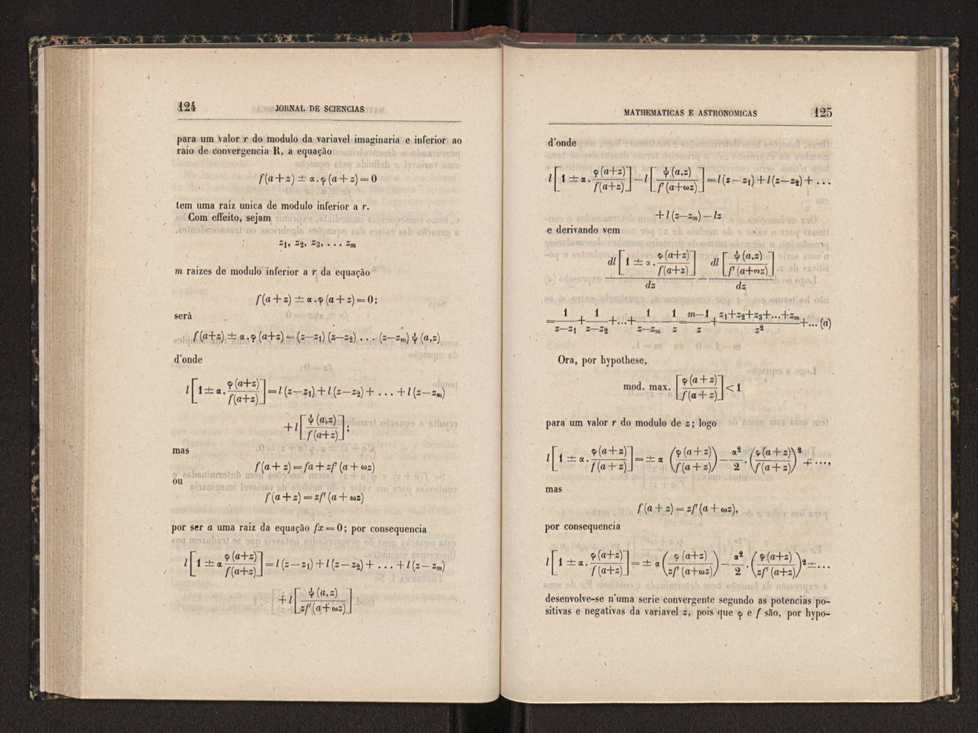 124 JORNAL DE SCIENCIAS
para um valor r do modulo da variavel imaginaria e inferior ao
raio de convergencia R, a equação
f(a+z) ± α.φ(a+z)=0
tem uma raiz unica de modulo inferior a r.
Com effeito, sejam
z₁, z₂, z₃, ... zₘ
m raizes de modulo inferior a r da equação
f(a+z) ± α.φ(a+z)=0;
será
f(a+z) ± α.φ(a+z)=(z—z₁)(z—z₂) ... (z—zₘ) ψ(a,z)
d'onde
l[1 ± α. φ(a+z)/f(a+z)]=l(z—z₁)+l(z—z₂)+ ... +l(z—zₘ)
+l[ψ(a,z)/f(a+z)];
mas
f(a+z)=fa+zf'(a+ωz)
ou
f(a+z)=zf'(a+ωz)
por ser a uma raiz da equação fx=0; por consequencia
l[1 ± α φ(a+z)/f(a+z)]=l(z—z₁)+l(z—z₂)+ ... +l(z—zₘ)
+l[ψ(a,z)/zf'(a+ωz)]
MATHEMATICAS E ASTRONOMICAS 125
d'onde
l[1 ± α. φ(a+z)/f(a+z)]—l[ψ(a,z)/f'(a+ωz)]=l(z—z₁)+l(z—z₂)+ ...
+l(z—zₘ)—lz
e derivando vem
dl[1 ± α. φ(a+z)/f(a+z)]/dz — dl[ψ(a,z)/f'(a+ωz)]/dz
=1/(z—z₁)+1/(z—z₂)+...+1/(z—zₘ)—1/z=(m—1)/z+(z₁+z₂+z₃+...+zₘ)/z²+...(a)
Ora, por hypothese,
mod. max. [φ(a+z)/f(a+z)]<1
para um valor r do modulo de z; logo
l[1 ± α. φ(a+z)/f(a+z)]= ± α (φ(a+z)/f(a+z))—α²/2.(φ(a+z)/f(a+z))² + ...,
mas
f(a+z)=zf'(a+ωz),
por consequencia
l[1 ± α. φ(a+z)/f(a+z)]= ± α(φ(a+z)/zf'(a+ωz))—α²/2.(φ(a+z)/zf'(a+z))²±...
desenvolve-se n'uma serie convergente segundo as potencias po-
sitivas e negativas da variavel z, pois que φ e f são, por hypo-